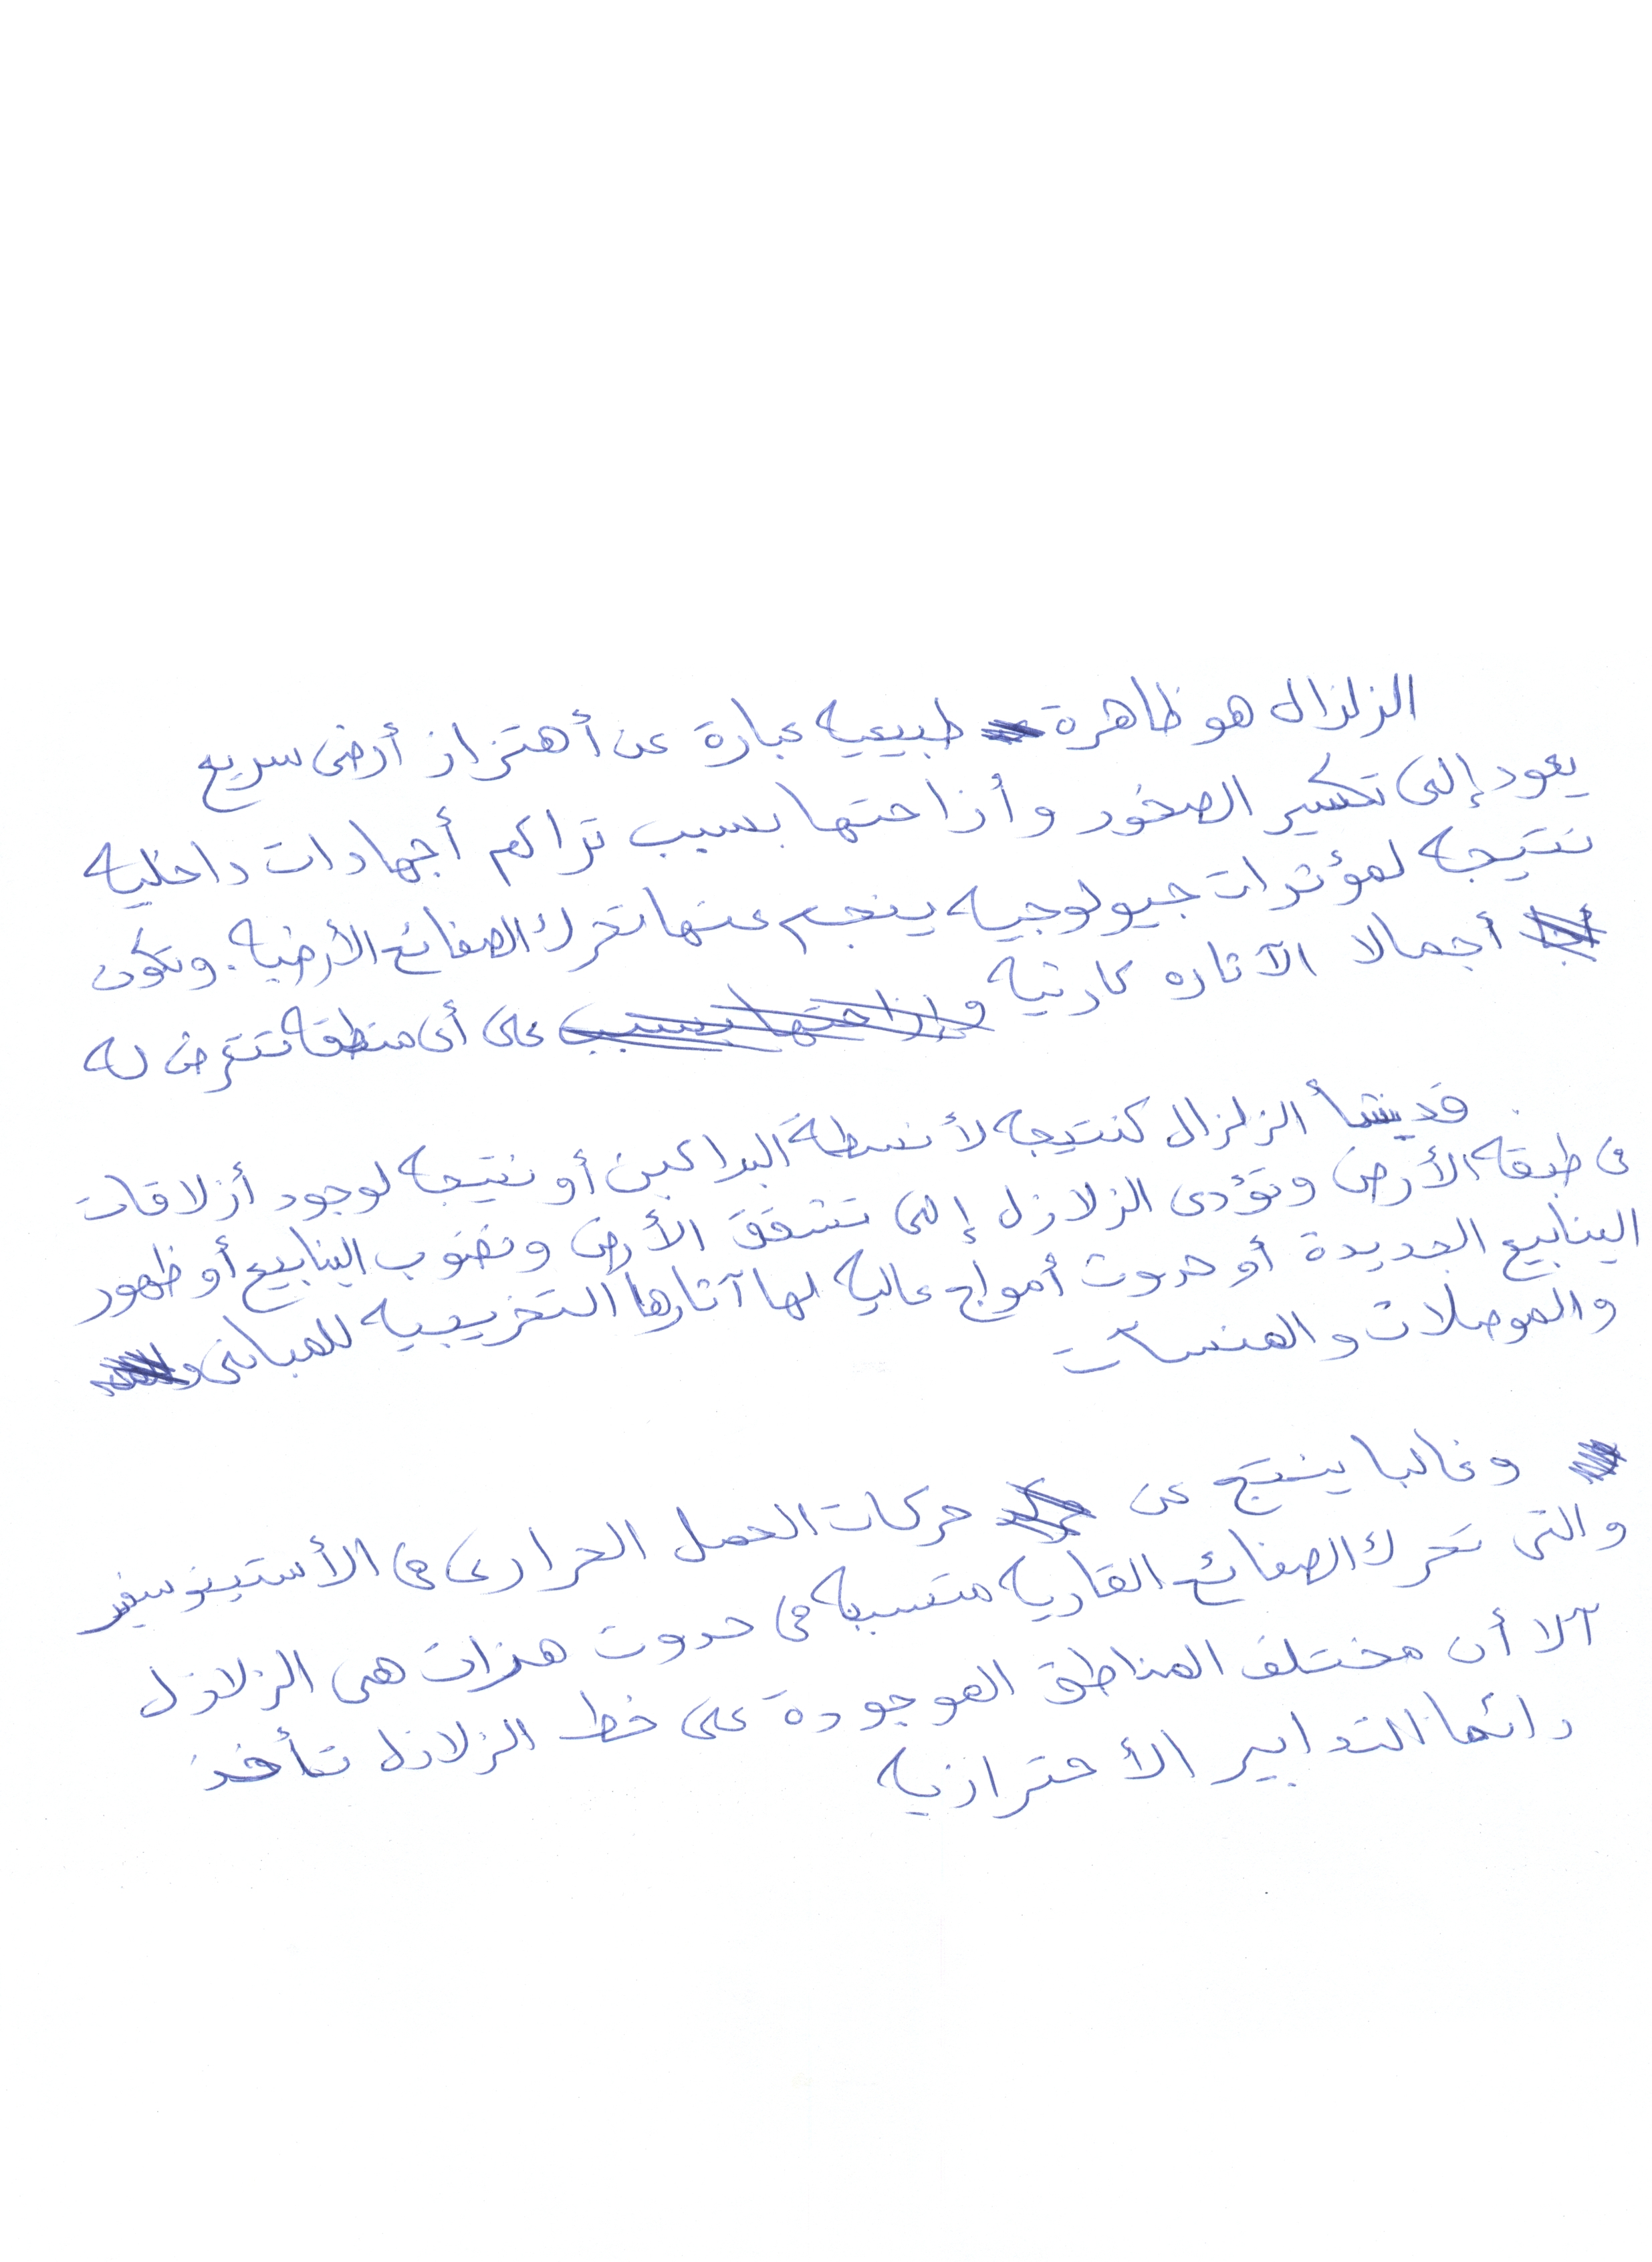 الزلزال هو ظاهرة طبيعيه عبارة عن أهتزاز أرضى سريع
يعود إلى تكسير الصخور وأزاحتها بسبب تراكم أجهادات داخليه
نتيجه لمؤثرات جيولوجيه ينجم عنها تحرك الصفائح الأرضيه. وتكون
أجمالا الآثاره كارثيه على أى منطقه تتعرض له
قد ينشأ الزلزال كنتيجه لأنشطة البراكين أو نتيجه لوجود أنزلاقات
فى طبقه الأرض وتؤدى الزلازل إلى تشقق الأرض ونضوب الينابيع أو ظهور
الينابيع الجديدة أو حدوث أمواج عاليه لها آثارها التخريبيه للمبانى و
والموصلات والمنشات
وغالبا ينتج عن حركات الحمل الحرارى فى الأستينوسفير
والتى تحرك الصفائح القاريه متسببه فى حدوث هزات هى الزلازل
آلا أن مختلف المناطق الموجودة على خط الزلازل تأخذ
دائما التدابير الأحترازيه